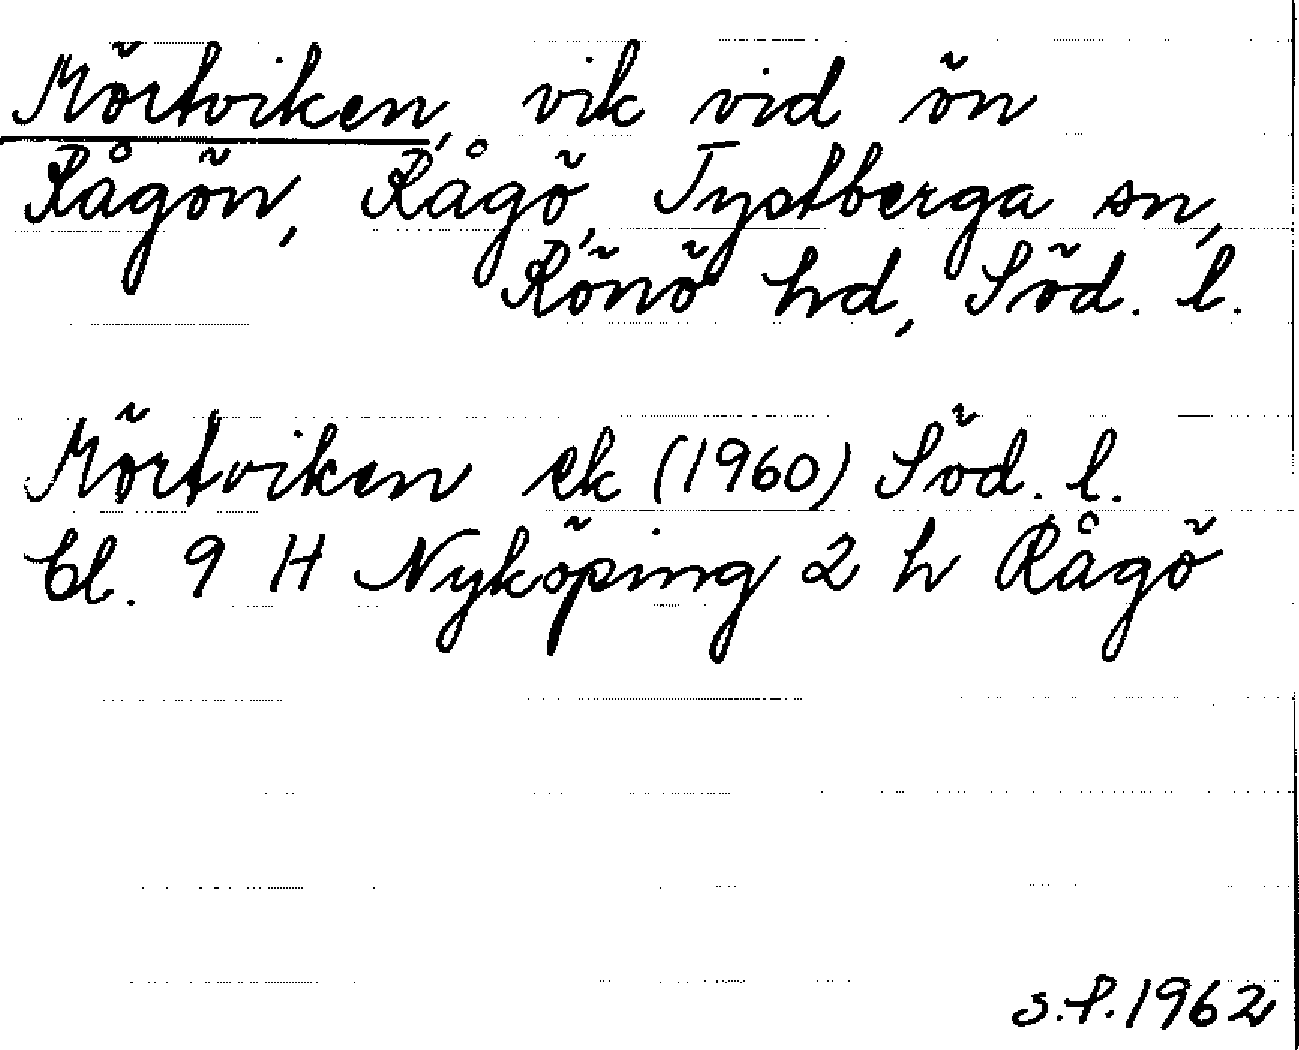 Mörtviken, vik vid ön
Rågön, Rågö, Tystberga sn,
Rönö hd, Söd. l.
Mörtviken ek (1960) Söd. l.
bl. 9 H Nyköping 2 h Rågö
S.P. 1962